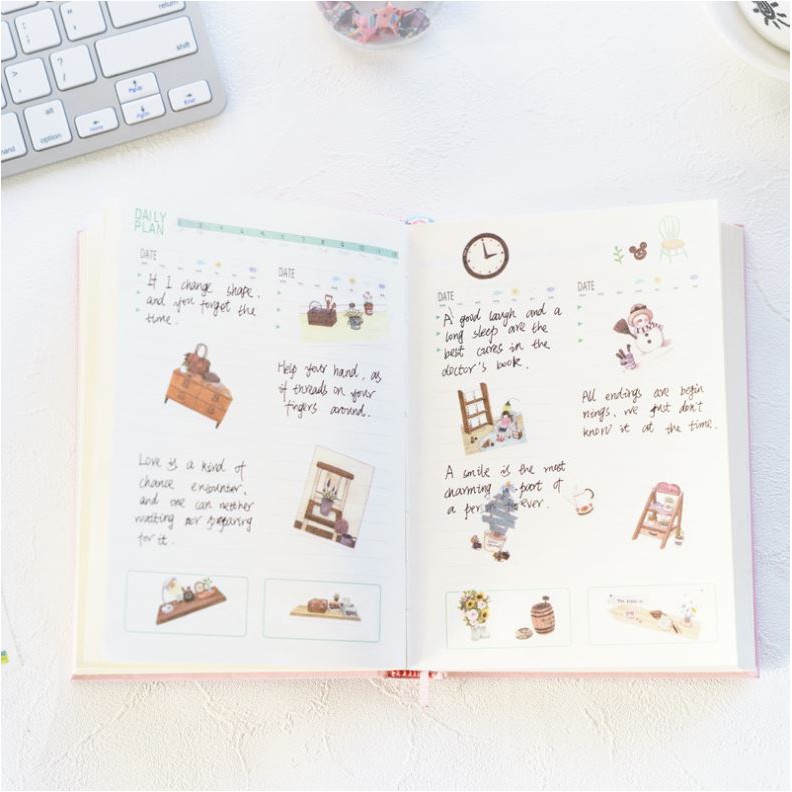 return
shift
: ;
" '
?
/
>
.
alt
option
PgUp
PgDn
Home
End
DAILY
PLAN
DATE
If I change shape,
and you forget the
time.
DATE
Help your hand, as
if threads on your
fingers around.
Love is a kind of
chance encounter,
and one can neither
waiting nor preparing
for it.
DATE
A good laugh and a
long sleep are the
best cures in the
doctor's book.
DATE
All endings are begin
nings, we just don't
know it at the time.
A smile is the most
charming part of
a person forever.